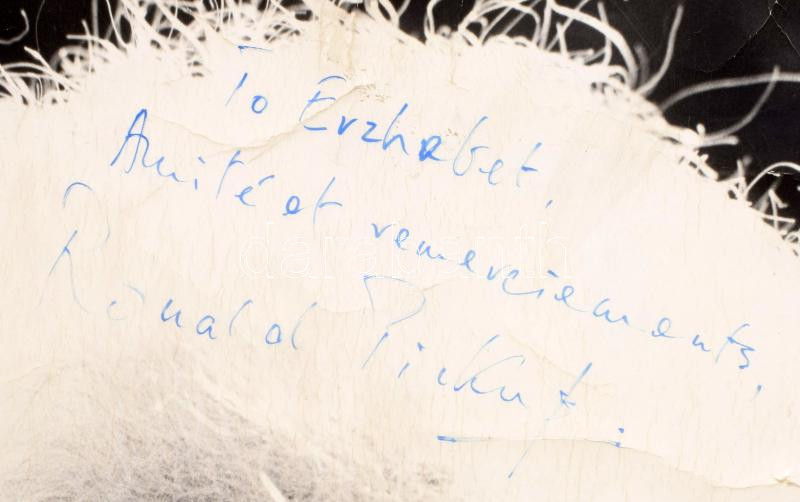 To Erzhabet,
Amitié et remerciements,
Ronald Pickup.
darabanth